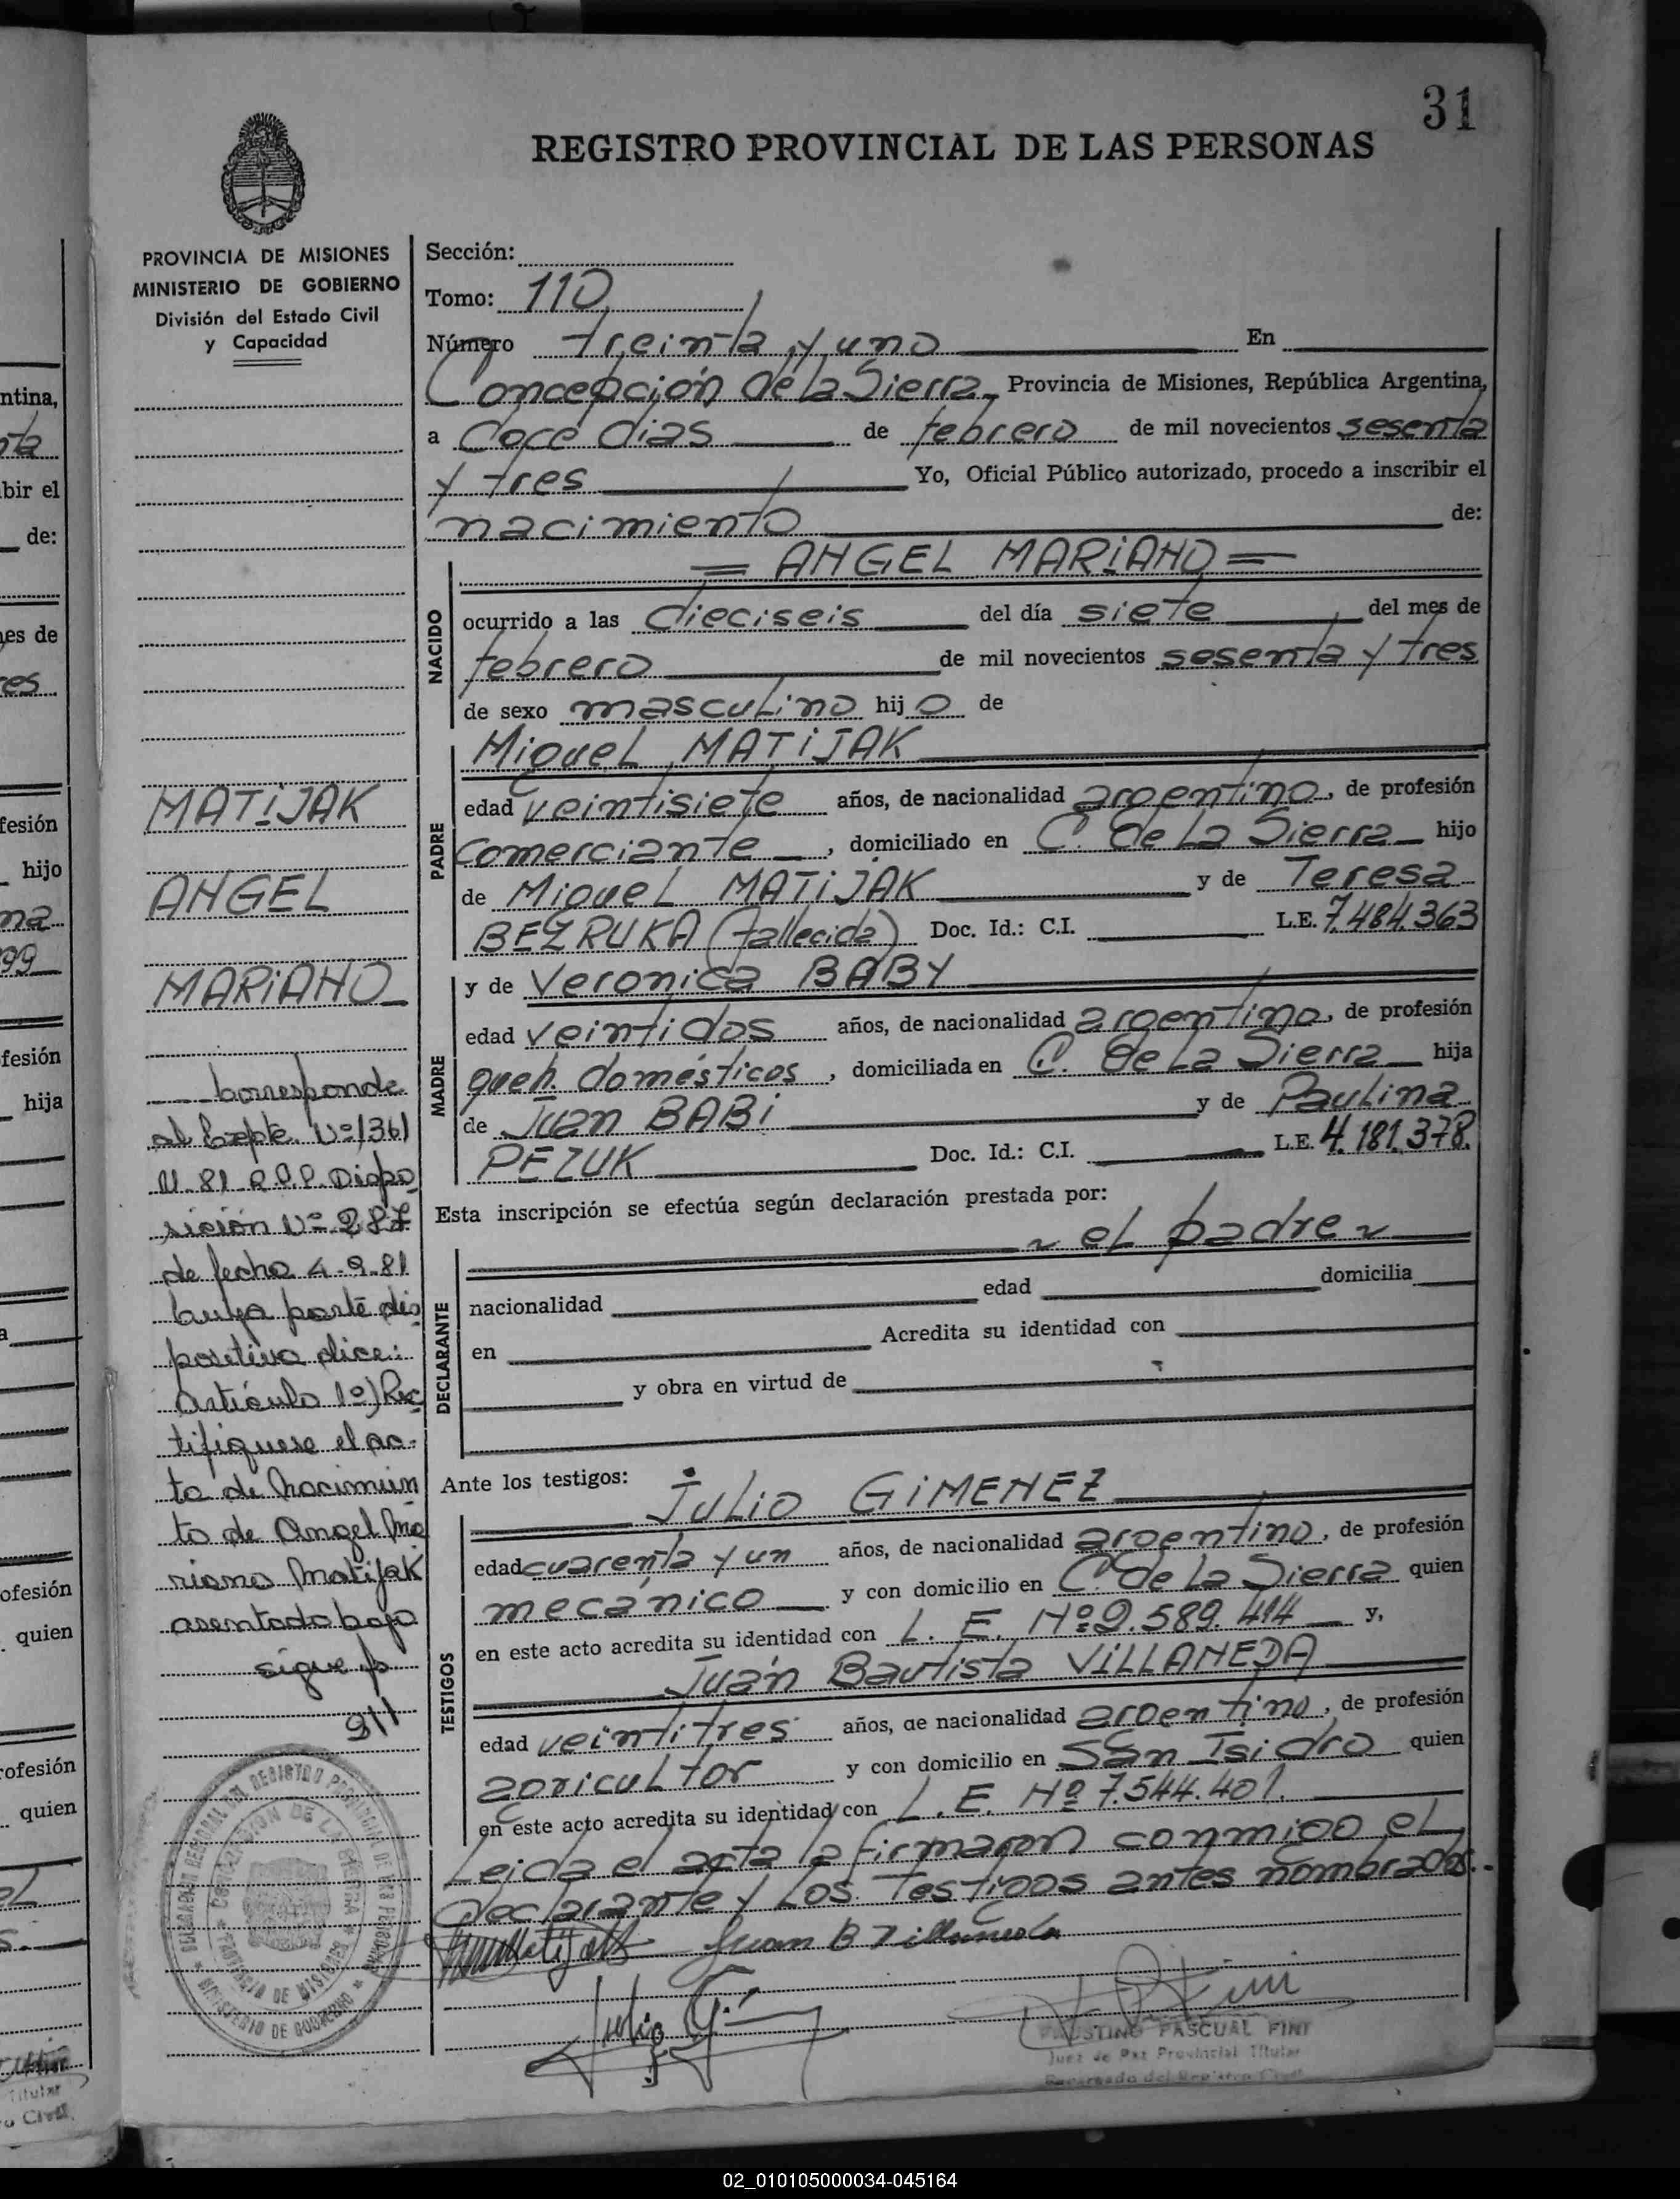 31
REGISTRO PROVINCIAL DE LAS PERSONAS
PROVINCIA DE MISIONES
MINISTERIO DE GOBIERNO
División del Estado Civil
y Capacidad
Sección:
Tomo: 110
Número treinta y uno En
Concepción de la Sierra Provincia de Misiones, República Argentina,
a doce dias de febrero de mil novecientos sesenta
y tres Yo, Oficial Público autorizado, procedo a inscribir el
nacimiento de:
NACIDO
= ANGEL MARIANO =
ocurrido a las dieciseis del día siete del mes de
febrero de mil novecientos sesenta y tres
de sexo masculino hijo de
PADRE
Miguel MATIJAK
edad veintisiete años, de nacionalidad argentino, de profesión
comerciante, domiciliado en C. de La Sierra hijo
de Miguel MATIJAK y de Teresa
BEZRUKA (fallecida) Doc. Id.: C.I. L.E. 7.484.363
MADRE
y de Veronica BABY
edad veintidos años, de nacionalidad argentina, de profesión
queh. domésticos, domiciliada en C. de La Sierra hija
de Juan BABI y de Paulina
PEZUK Doc. Id.: C.I. L.E. 4.181.378.
Esta inscripción se efectúa según declaración prestada por:
~ el padre ~
DECLARANTE
nacionalidad edad domicilia
en Acredita su identidad con
y obra en virtud de
Ante los testigos: Julio GIMENEZ
TESTIGOS
edad cuarenta y un años, de nacionalidad argentino, de profesión
mecánico y con domicilio en C. de La Sierra quien
en este acto acredita su identidad con L. E. Nº 9.589.414 y,
Juan Bautista VILLANEDA
edad veintitres años, de nacionalidad argentino, de profesión
agricultor y con domicilio en San Isidro quien
en este acto acredita su identidad con L. E. Nº 7.544.401.
Leida el acta la firmaron conmigo el
declarante y los testigos antes nombrados.-
Juan B Villaneda
Julio G.
FAUSTINO PASCUAL FINI
Juez de Paz Provincial Titular
Encargado del Registro Civil
MATIJAK
ANGEL
MARIANO
Corresponde
al Expte. Nº 1361
U. 81 R.P.P. Dispo
sición Nº 287
de fecha 4-9-81
cuya parte dis
positiva dice:
Artículo 1º) Rec
tifíquese el ac-
ta de Nacimien
to de Angel Ma
riano Matijak
asentado bajo
sigue fº
911
DELEGACION REGIONAL DEL REGISTRO PROVINCIAL DE LAS PERSONAS
CONCEPCION DE LA SIERRA
PROVINCIA DE MISIONES
MINISTERIO DE GOBIERNO
02_010105000034-045164